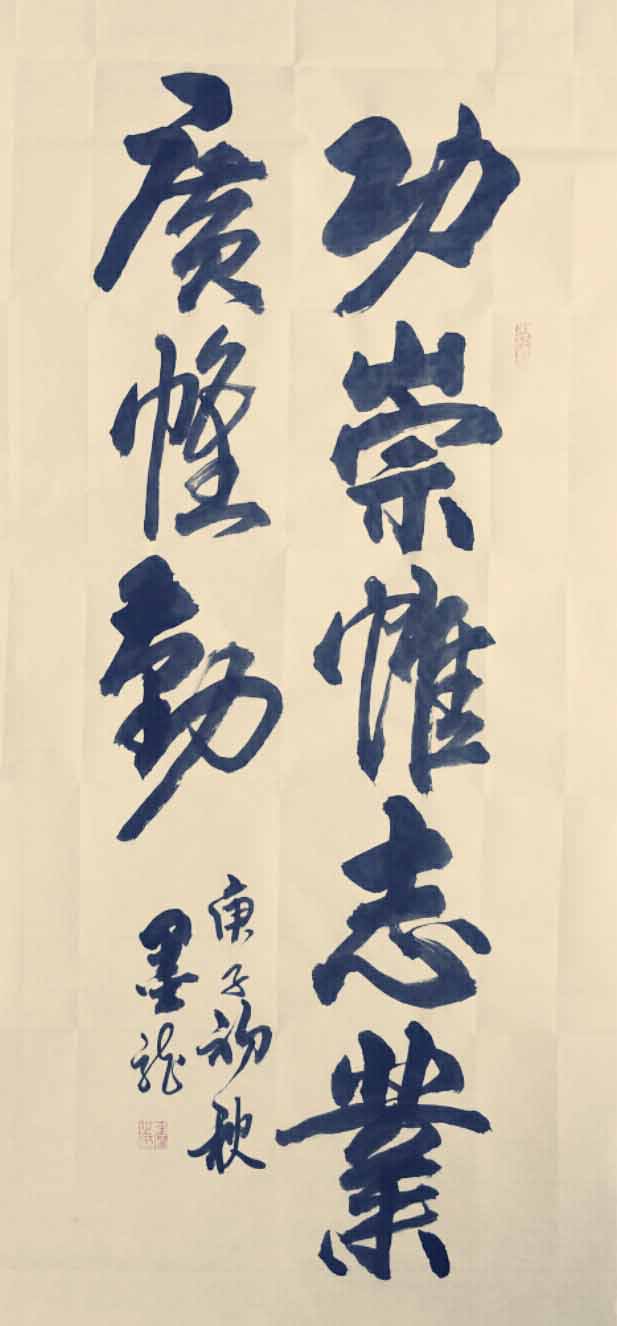 功崇惟志業
廣惟勤
庚子初秋
墨龍